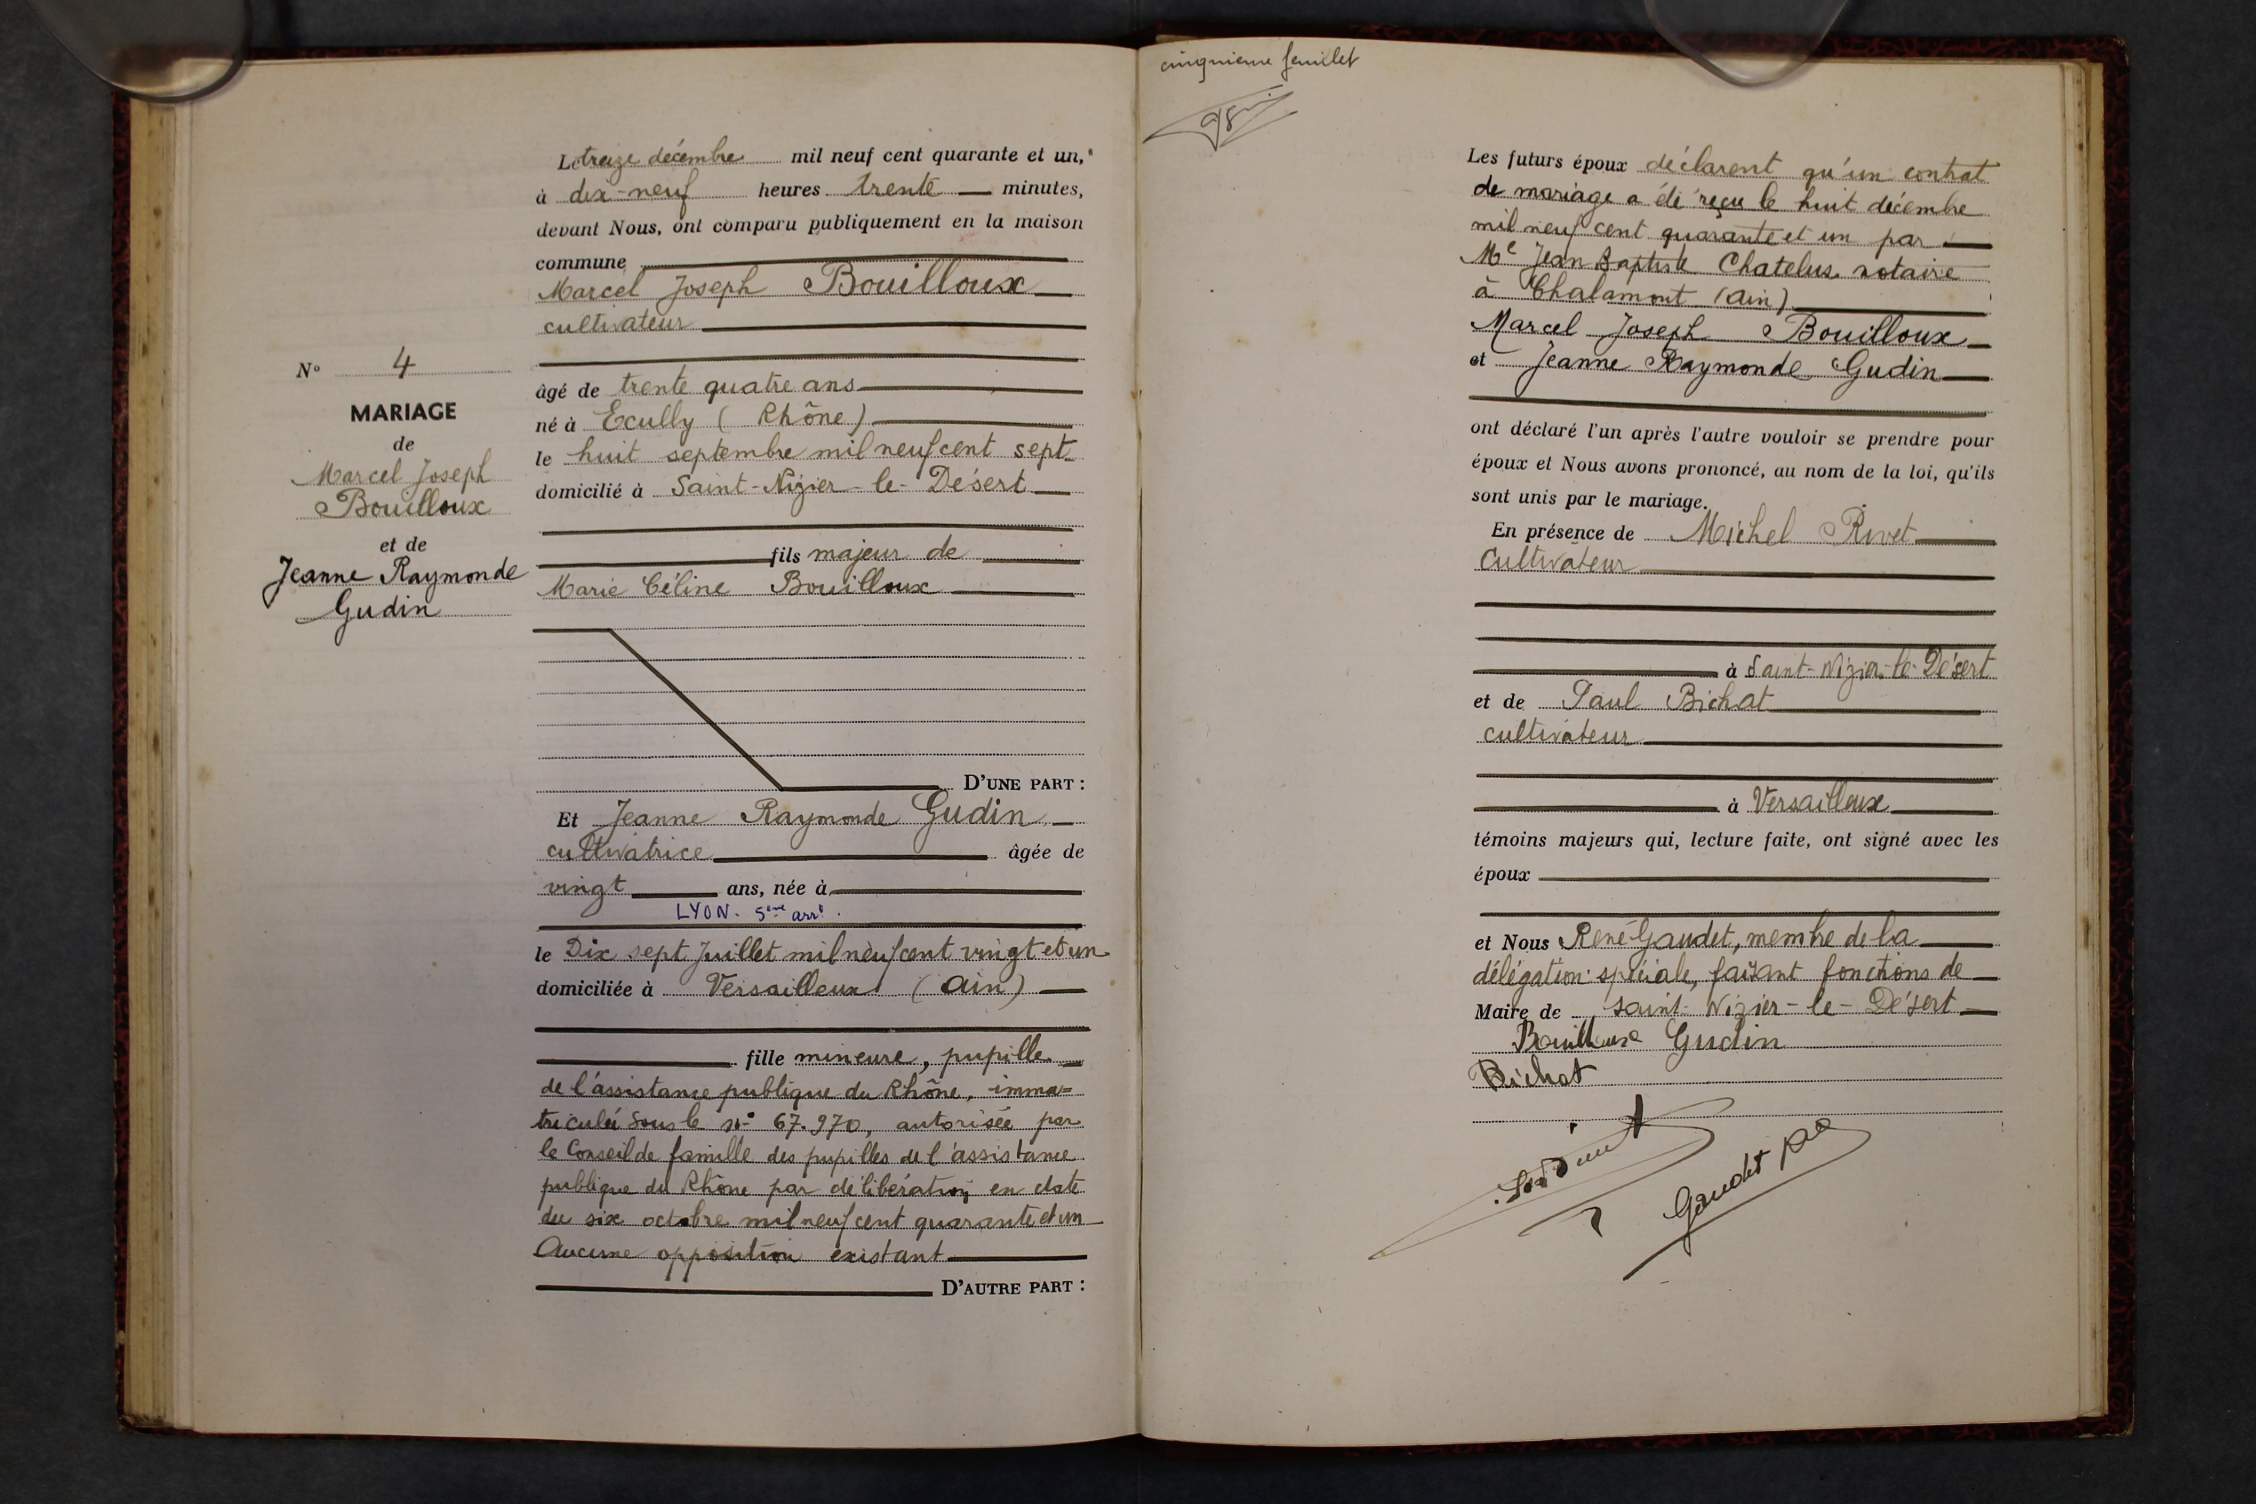 N° 4
MARIAGE
de
Marcel Joseph
Bouilloux
et de
Jeanne Raymonde
Gudin
Le treize décembre mil neuf cent quarante et un,
à dix-neuf heures trente minutes,
devant Nous, ont comparu publiquement en la maison
commune
Marcel Joseph Bouilloux
cultivateur
âgé de trente quatre ans
né à Ecully (Rhône)
le huit septembre mil neuf cent sept
domicilié à Saint-Nizier-le-Désert
fils majeur de
Marie Céline Bouilloux
D'UNE PART :
Et Jeanne Raymonde Gudin
cultivatrice âgée de
vingt ans, née à
LYON. 5eme arrt.
le Dix sept Juillet mil neuf cent vingt et un
domiciliée à Versailleux (Ain)
fille mineure, pupille
de l'assistance publique du Rhône, imma=
triculée sous le n° 67.970, autorisée par
le Conseil de famille des pupilles de l'assistance
publique du Rhône par délibération en date
du six octobre mil neuf cent quarante et un
Aucune opposition existant
D'AUTRE PART :
cinquième feuillet
Les futurs époux déclarent qu'un contrat
de mariage a été reçu le huit décembre
mil neuf cent quarante et un par
Me Jean Baptiste Chatelus notaire
à Chalamont (Ain)
Marcel Joseph Bouilloux
et Jeanne Raymonde Gudin
ont déclaré l'un après l'autre vouloir se prendre pour
époux et Nous avons prononcé, au nom de la loi, qu'ils
sont unis par le mariage.
En présence de Michel Rivet
Cultivateur
à Saint-Nizier-le-Désert
et de Paul Bichat
cultivateur
à Versailleux
témoins majeurs qui, lecture faite, ont signé avec les
époux
et Nous René Gaudet, membre de la
délégation spéciale, faisant fonctions de
Maire de Saint-Nizier-le-Désert
Bouilloux Gudin
Bichat
Gaudet